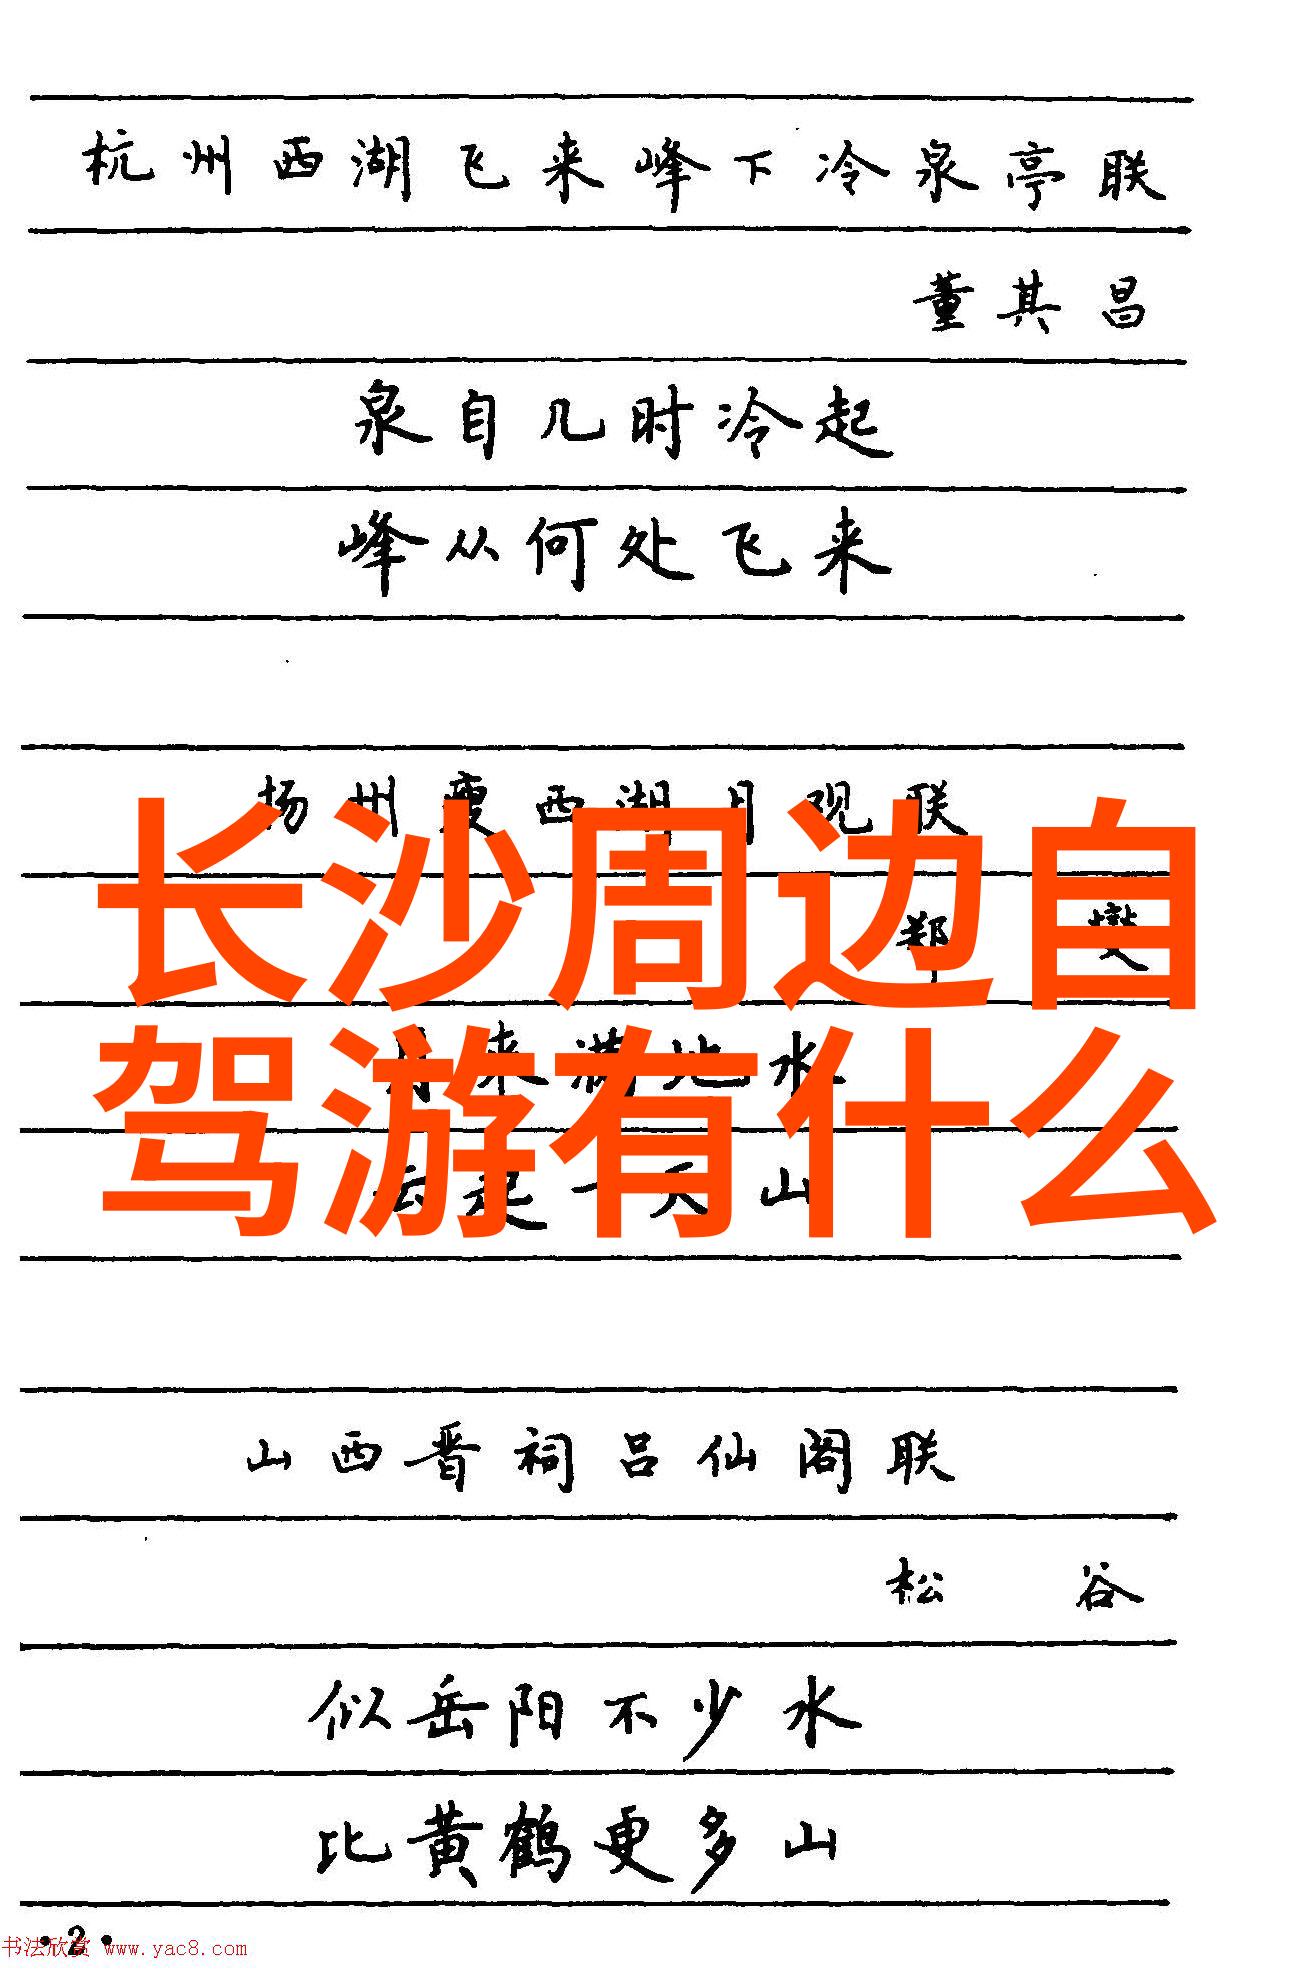 杭州西湖飞来峰下冷泉亭联
董其昌
泉自几时冷起
峰从何处飞来
扬州瘦西湖月观联
长沙周边自
郑燮
月来满地水
驾游有什么
云起一天山
山西晋祠吕仙阁联
松谷
似岳阳不少水
比黄鹤更多山
·2·
书法欣赏 www.yac8.com